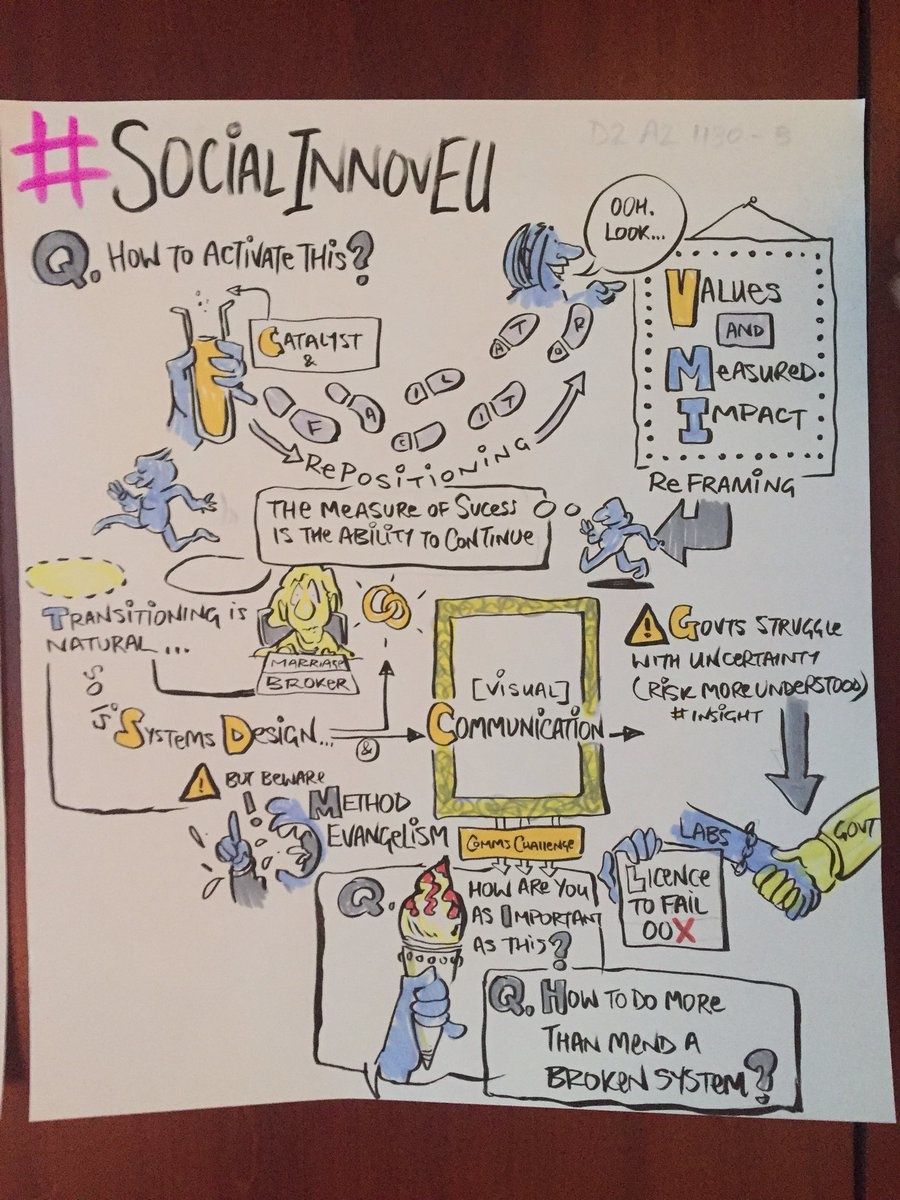 #SOCIALINNOVEU
D2 A2 1130 -
Q. HOW TO ACTIVATE THIS?
OOH.
LOOK...
CATALYST
&
VALUES
AND
MEASURED
IMPACT
FACILITATOR
REPOSITIONING
REFRAMING
THE MEASURE OF SUCESS
IS THE ABILITY TO CONTINUE
TRANSITIONING IS
NATURAL...
MARRIAGE
BROKER
SO IS
SYSTEMS DESIGN...
&
[VISUAL]
COMMUNICATION
! GOVTS STRUGGLE
WITH UNCERTAINTY
(RISK MORE UNDERSTOOD)
#INSIGHT
! BUT BEWARE
!
METHOD
EVANGELISM
COMMS CHALLENGE
LABS
GOVT
LICENCE
TO FAIL
00X
Q. HOW ARE YOU
AS IMPORTANT
AS THIS?
Q. HOW TO DO MORE
THAN MEND A
BROKEN SYSTEM?